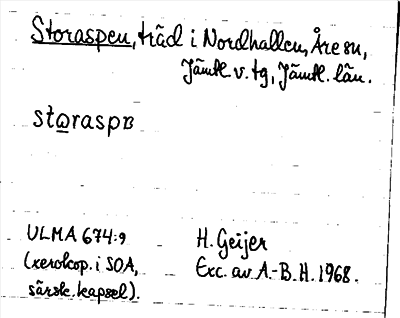 Storaspen, träd i Nordhallen, Åre sn,
Jämtl. v. tg, Jämtl. län.
stωraspɴ
ULMA 674:9
(xerokop. i SOA,
särsk. kapsel).
H. Geijer
Exc. av A.-B. H. 1968.